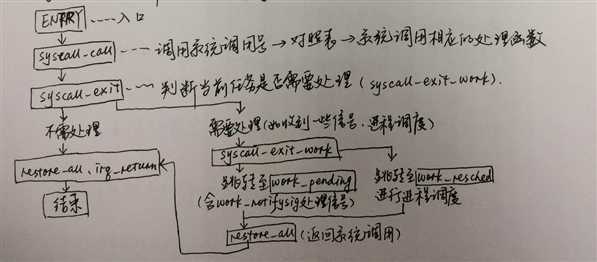 ENTRY ----入口
syscall-call --- 调用系统调用号→对照表→系统调用相应的处理函数
syscall-exit --- 判断当前任务是否需要处理(syscall-exit-work).
不需处理
需要处理(如收到一些信号、进程调度)
syscall-exit-work
restore-all、irq-return
跳转至work-pending
跳转至work-resched
结束
(含work-notifysig处理信号)
进行进程调度
restore-all(返回系统调用)